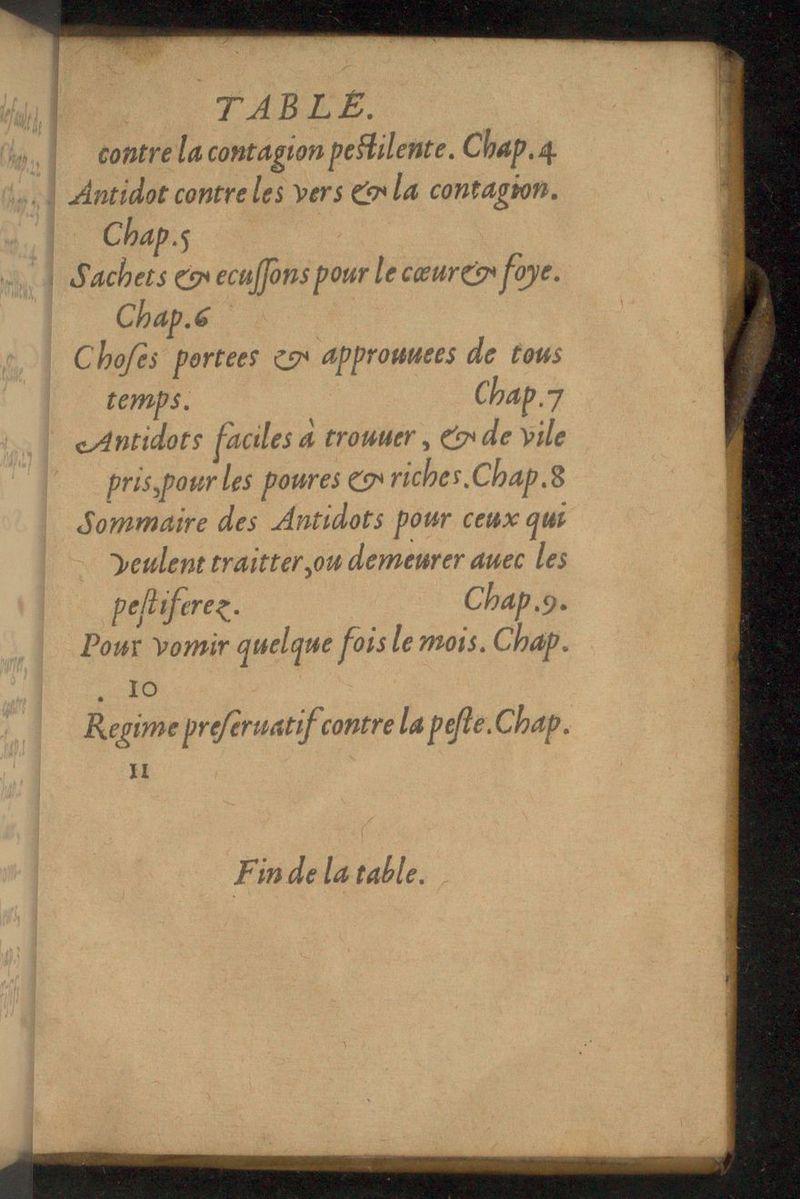 TABLE.
contre la contagion pestilente. Chap.4
Antidot contre les vers & la contagion.
Chap.5
Sachets & ecuſſons pour le cœur & foye.
Chap.6
Choſes portees & approuuees de tous
temps. Chap.7
Antidots faciles à trouuer, & de vile
pris, pour les poures & riches. Chap.8
Sommaire des Antidots pour ceux qui
veulent traitter, ou demeurer auec les
peſtiferez. Chap.9.
Pour vomir quelque fois le mois. Chap.
10
Regime preſeruatif contre la peſte. Chap.
11
Fin de la table.